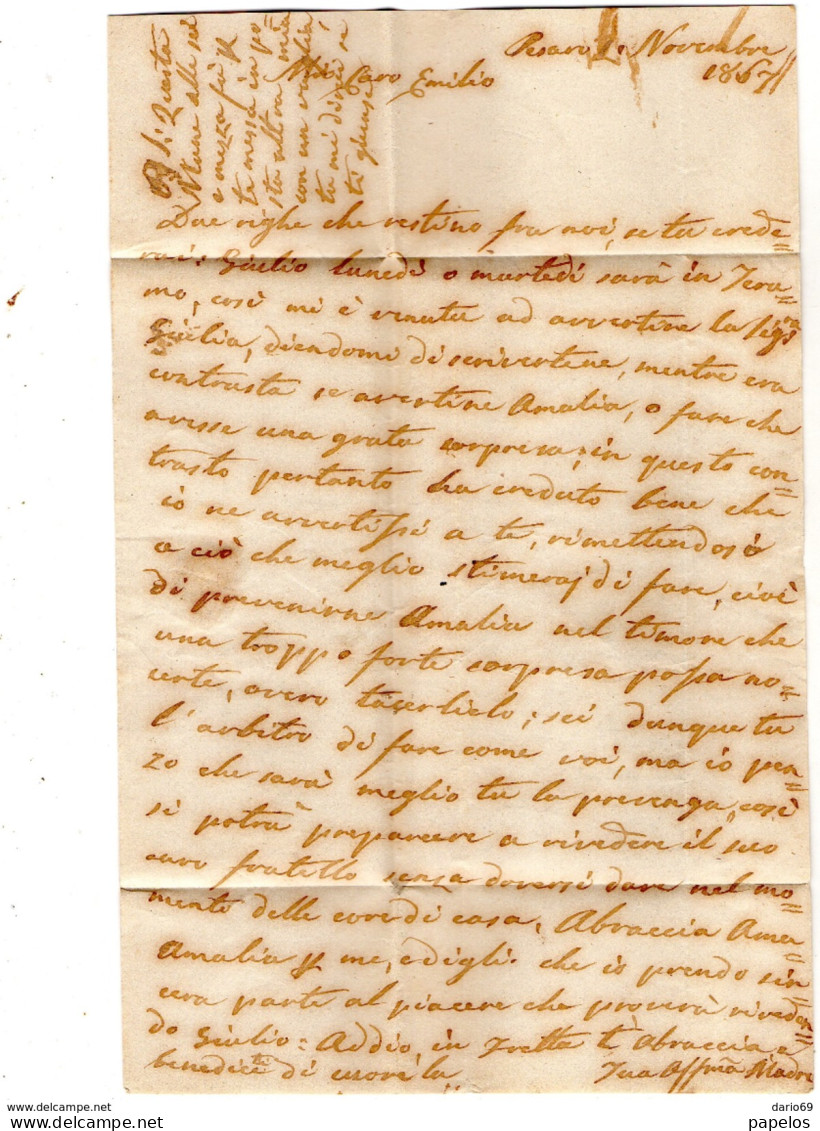 Pesaro 1: Novembre
1867
Mio Caro Emilio
Due righe che restino fra noi, se tu crede=
rai: Giulio lunedì o martedì sarà in Tera=
mo, così mi è venuta ad avvertire la Sigra
Giulia, dicendomi di scrivertene, mentre era
contrasta se avertine Amalia, o fare che
avesse una grata sorpresa; in questo con=
trasto pertanto ha creduto bene che
io ne avertissi a te, rimettendosi
a ciò che meglio stimeraj di fare, cioè
di prevenirne Amalia nel timore che
una troppo forte sorpresa possa no=
cerle, overo tacerlielo; sei dunque tu
l'arbitro di fare come voi, ma io pen=
zo che sarà meglio tu la prevenga, così
si potrà preparare a rivedere il suo
caro fratello senza doversi dare nel mo=
mento delle cure di casa. Abraccia Ama=
Amalia p me, e digli che io prendo sin=
cera parte al piacere che proverà riveden=
do Giulio = Addio in fretta ti Abraccia e
benedice di cuore la
Tua Affma Madre
P. S. Questa
mane alle sei
e mezza fù
messa in po
sta altra mia
con un vaglia
tu mi dirai se
ti giunse
dario69
www.delcampe.net
papelos